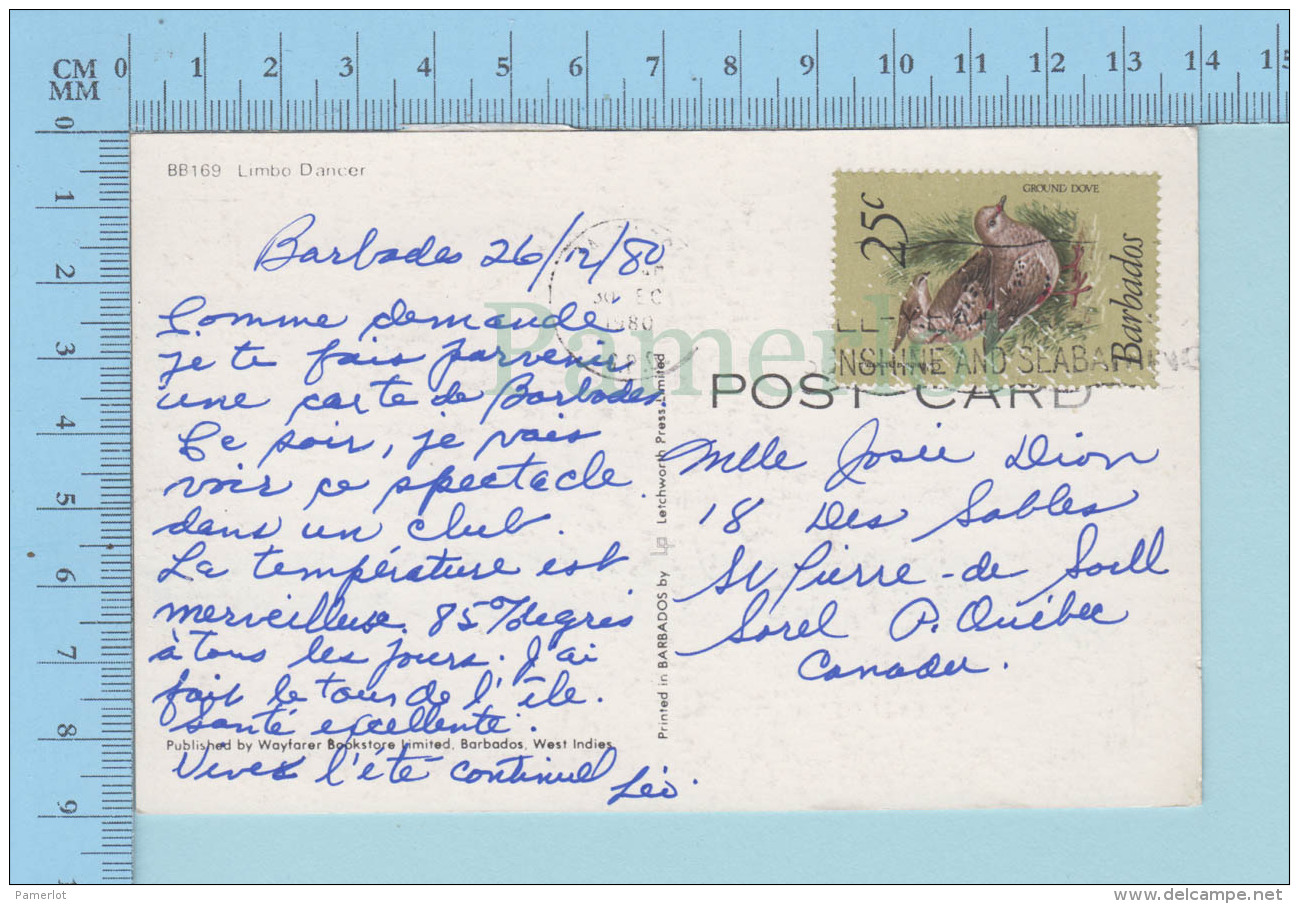 CM 0 1 2 3 4 5 6 7 8 9 10 11 12 13 14 15
MM
0
1
2
3
4
5
6
7
8
9
BB169 Limbo Dancer
GROUND DOVE
25c
Barbados
Barbades 26/12/80
1980
Comme demande
je te fais parvenir
une carte de Barbades.
Ce soir, je vais
voir ce spectacle
dans un club.
La température est
merveilleuse. 85% degrés
à tous les jours. J'ai
fait le tour de l'île.
santé excellente.
Published by Wayfarer Bookstore Limited, Barbados, West Indies
Vives l'été continuel
Léo.
Printed in BARBADOS by LP Letchworth Press Limited
NSHINE AND SEABA
POST CARD
Mlle Josie Dion
18 Des Sables
St Pierre-de Soell
Sorel P. Québec
Canada.
Pamerlot
Pamerlot
www.delcampe.net